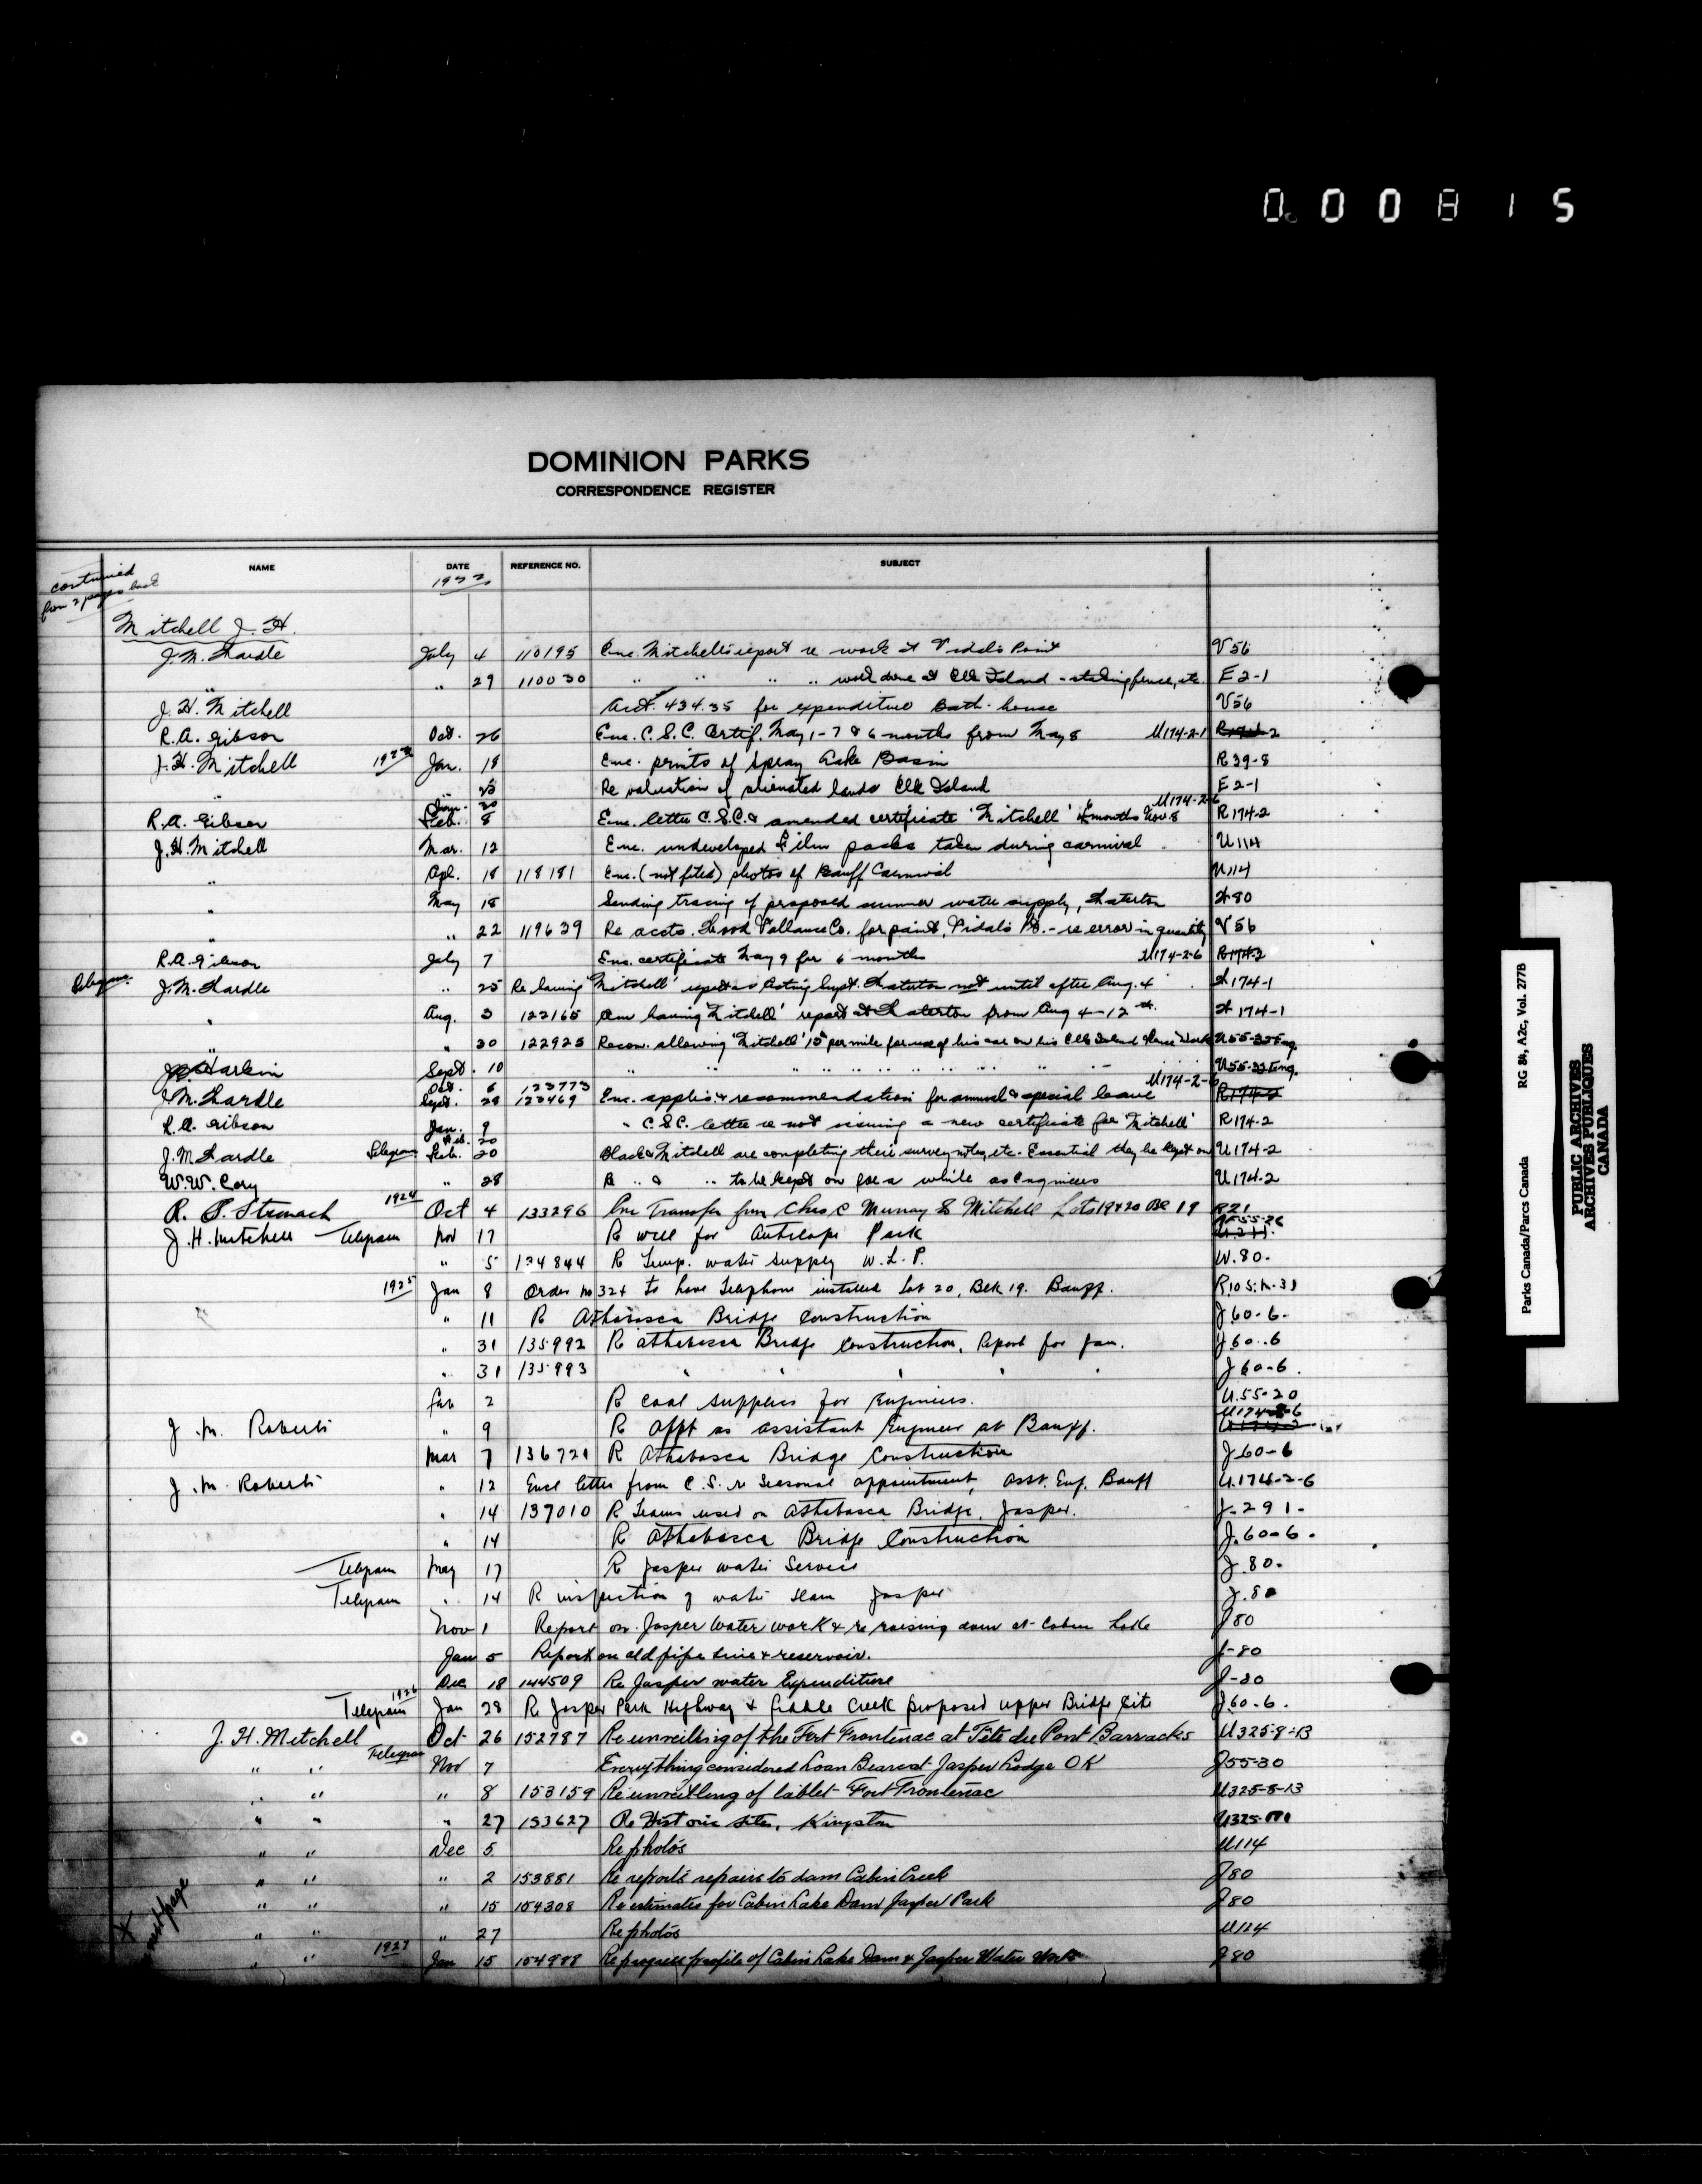 0.00815
DOMINION PARKS
CORRESPONDENCE REGISTER
NAME DATE REFERENCE NO. SUBJECT
continued
from 2 pages back
1922
Mitchell J. H.
J. M. Wardle July 4 110195 Enc. Mitchell's report re work at Vidal's Point V56
" " 29 110030 " " " " work done at Elk Island - staking fence, etc. E2-1
J. H. Mitchell Acct. 434.35 for expenditure Bath-house V56
R. A. Gibson Oct. 26 Enc. C.S.C. Certif. May 1-7 & 6 months from May 8 U174-2-1
J. H. Mitchell Jan. 18 Enc. prints of Spray Lake Basin R39-8
Re valuation of alienated lands Elk Island E2-1
Jan. 30 U174-2-6
R. A. Gibson Feb. 8 Enc. letter C.S.C. & amended certificate 'Mitchell' 6 months Nov. 8 R174-2
J. H. Mitchell Mar. 12 Enc. undeveloped film packs taken during carnival U114
" Apl. 18 118181 Enc. (not filed) photos of Banff Carnival U114
" May 18 Sending tracing of proposed summer water supply, Waterton W80
" " 22 119639 Re accts. Wood Vallance Co. for paint, Vidal's Pt. - re error in quantity V56
R. A. Gibson July 7 Enc. certificate May 9 for 6 months U174-2-6 R174-2
Telegram J. M. Wardle " 25 Re having 'Mitchell' report as Acting Supt. Waterton not until after Aug. 4 W174-1
" Aug. 3 122165 Am having 'Mitchell' report at Waterton from Aug 4-12th. W174-1
" " 20 122925 Recom. allowing 'Mitchell' 15 per mile for use of his car on his Elk Island fence work U55-33 Eng.
Harkin Sept. 10 " " " " " " U55-33 Eng.
Oct. 6 123773 U174-2-6
J. M. Wardle Sept. 28 123469 Enc. applic. & recommendation for annual & special leave R174-2
R. A. Gibson Jan. 9 " C.S.C. letter re not issuing a new certificate for 'Mitchell' R174-2
J. M. Wardle Telegram Feb. 20 Black & Mitchell are completing their survey notes, etc. Essential they be kept on U174-2
W. W. Cory " 28 B " & " " to be kept on for a while as Engineers U174-2
R. S. Stronach 1924 Oct 4 133296 Enc Transfer from Chas C Murray to Mitchell Lots 19 & 20 Blk 19 R21
J. H. Mitchell Telegram Nov 17 R well for Antelope Park
" 5 134844 R Temp. water supply W. L. P. W.80.
1925 Jan 8 Order No 324 to have Telephone installed Lot 20, Blk 19. Banff.
" 11 R Athabasca Bridge Construction J.60-6.
" 31 135992 R Athabasca Bridge Construction, Report for Jan. J.60-6
" 31 135993 " " " " J.60-6.
Feb 2 R coal supplies for Engineers. U.55-20
J. M. Roberts " 9 R appt as assistant Engineer at Banff.
Mar 7 136721 R Athabasca Bridge Construction J.60-6
J. M. Roberts " 12 Encl letter from C.S. re Seasonal appointment, Asst. Eng. Banff U.174-2-6
" 14 137010 R Teams used on Athabasca Bridge, Jasper. J-291-
" 14 R Athabasca Bridge Construction J.60-6.
Telegram May 17 R Jasper water Service J.80.
Telegram " 14 R inspection of water dam Jasper J.80
Nov 1 Report on Jasper Water work & re raising dam at Cabin Lake J80
Jan 5 Report on old pipe line & reservoir. J-80
Dec 18 144509 Re Jasper water Expenditure J-80
1926 Telegram Jan 28 R Jasper Park Highway & Fiddle Creek proposed upper Bridge Site J.60-6.
J. H. Mitchell Oct 26 152787 Re unveiling of the Fort Frontenac at Tête du Pont Barracks U325-8-13
" " Telegram Nov 7 Everything considered Loan Bearcat Jasper Lodge OK J55-30
" " " 8 153159 Re unveiling of tablet Fort Frontenac U325-8-13
" " " 27 153627 Re Historic sites, Kingston
" " Dec 5 Re photos U114
" " " 2 153881 Re reports repairs to dam Cabin Creek J80
" " " 15 154308 Re estimates for Cabin Lake Dam Jasper Park J80
" " " 27 Re photos U114
" 1927 Jan 15 154988 Re progress profile of Cabin Lake Dam & Jasper Water Works J80
next page
Parks Canada/Parcs Canada RG 84, A2c, Vol. 277B
PUBLIC ARCHIVES
ARCHIVES PUBLIQUES
CANADA